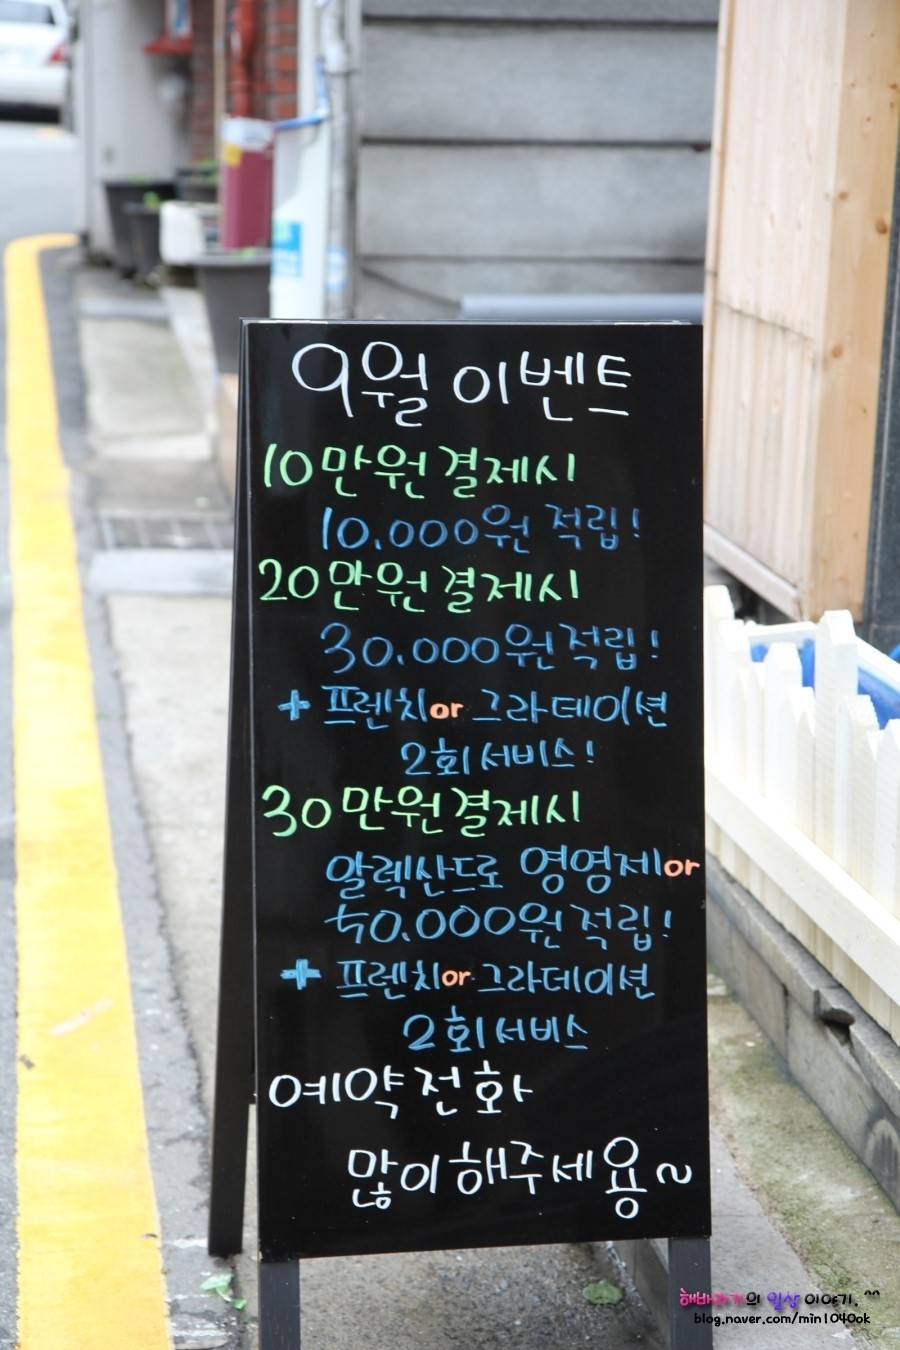 9월 이벤트
10만원 결제시
10.000원 적립!
20만원 결제시
30.000원 적립!
+ 프렌치 or 그라데이션
2회 서비스!
30만원 결제시
알렉산드로 영영제 or
50.000원 적립!
+ 프렌치 or 그라데이션
2회 서비스
예약전화
많이해주세용~
해바라기의 일상 이야기.^^
blog.naver.com/min1040ok